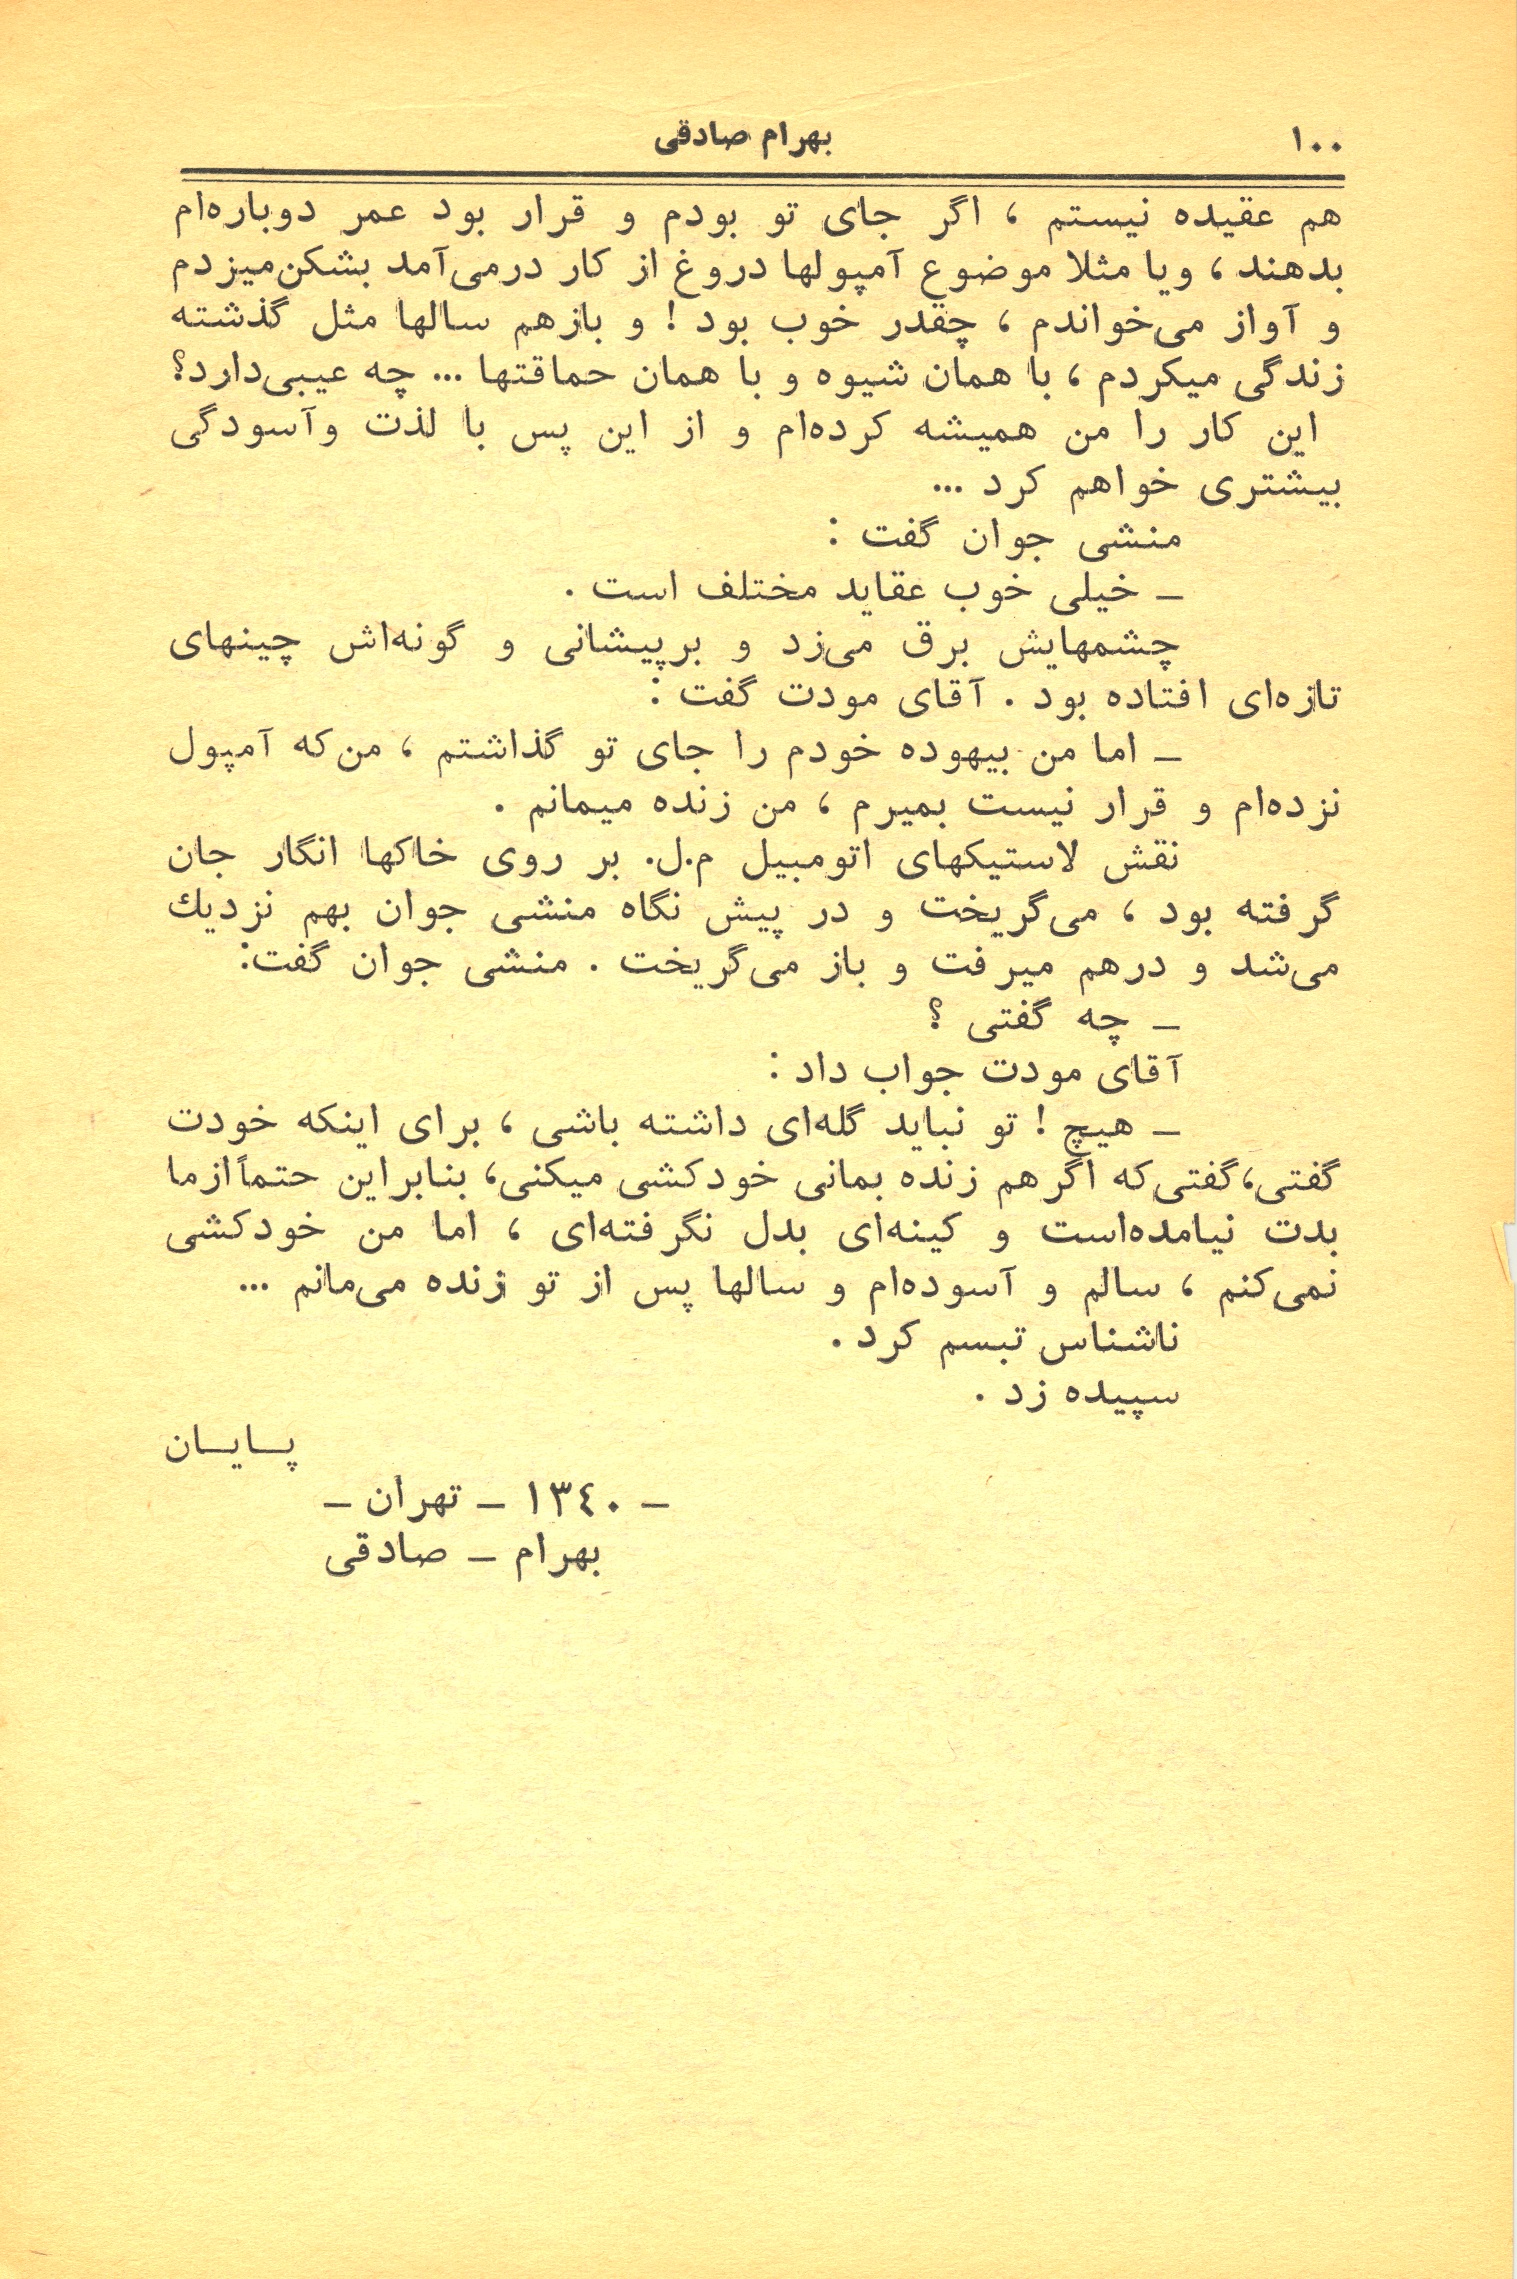 ۱۰۰ بهرام صادقی
هم عقیده نیستم ، اگر جای تو بودم و قرار بود عمر دوباره‌ام
بدهند ، ویا مثلا موضوع آمپولها دروغ از کار درمی‌آمد بشکن‌میزدم
و آواز می‌خواندم ، چقدر خوب بود ! و بازهم سالها مثل گذشته
زندگی میکردم ، با همان شیوه و با همان حماقتها ... چه عیبی‌دارد؟
این کار را من همیشه کرده‌ام و از این پس با لذت وآسودگی
بیشتری خواهم کرد ...
منشی جوان گفت :
ـ خیلی خوب عقاید مختلف است .
چشمهایش برق می‌زد و برپیشانی و گونه‌اش چینهای
تازه‌ای افتاده بود . آقای مودت گفت :
ـ اما من بیهوده خودم را جای تو گذاشتم ، من‌که آمپول
نزده‌ام و قرار نیست بمیرم ، من زنده میمانم .
نقش لاستیکهای اتومبیل م.ل. بر روی خاکها انگار جان
گرفته بود ، می‌گریخت و در پیش نگاه منشی جوان بهم نزدیك
می‌شد و درهم میرفت و باز می‌گریخت . منشی جوان گفت:
ـ چه گفتی ؟
آقای مودت جواب داد :
ـ هیچ ! تو نباید گله‌ای داشته باشی ، برای اینکه خودت
گفتی، گفتی‌که اگرهم زنده بمانی خودکشی میکنی، بنابراین حتماً ازما
بدت نیامده‌است و کینه‌ای بدل نگرفته‌ای ، اما من خودکشی
نمی‌کنم ، سالم و آسوده‌ام و سالها پس از تو زنده می‌مانم ...
ناشناس تبسم کرد .
سپیده زد .
پـایـان
ـ ۱۳٤۰ ـ تهران ـ
بهرام ـ صادقی